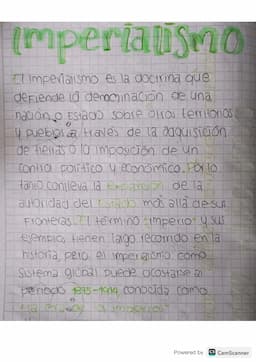 Imperialismo
El imperialismo es la doctrina que
defiende la demoninación de una
nación o Estado sobre otros territorios
y pueblos a través de la adquisición
de tierras o la imposición de un
control político y económico. Por lo
tanto conlleva la expansión de la
autoridad del Estado más allá de sus
fronteras. El término imperio y sus
ejemplos tienen largo recorrido en la
historia, pero el imperialismo como
sistema global puede acotarse al
periodo 1875-1914 conocida como
Powered by CS CamScanner